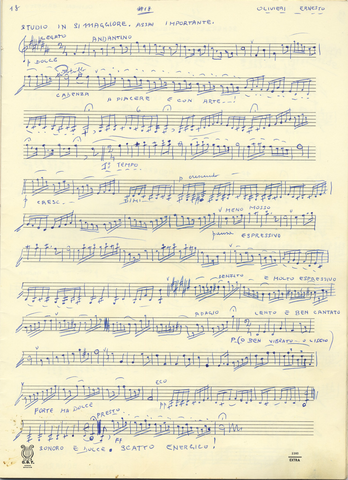 18 #18 OLIVIERI ERNESTO
STUDIO IN SI MAGGIORE. ASSAI IMPORTANTE.
ANDANTINO
DOLCE
CADENZA A PIACERE E CON ARTE...
1° TEMPO
CRESC. DIM.
MENO MOSSO
ESPRESSIVO
E MOLTO ESPRESSIVO
ADAGIO LENTO E BEN CANTATO
BEN VIBRATO O LISCIO
ECO
FORTE MA DOLCE PP
PRESTO
PP
SONORO E DOLCE. SCATTO ENERGICO!
EXTRA